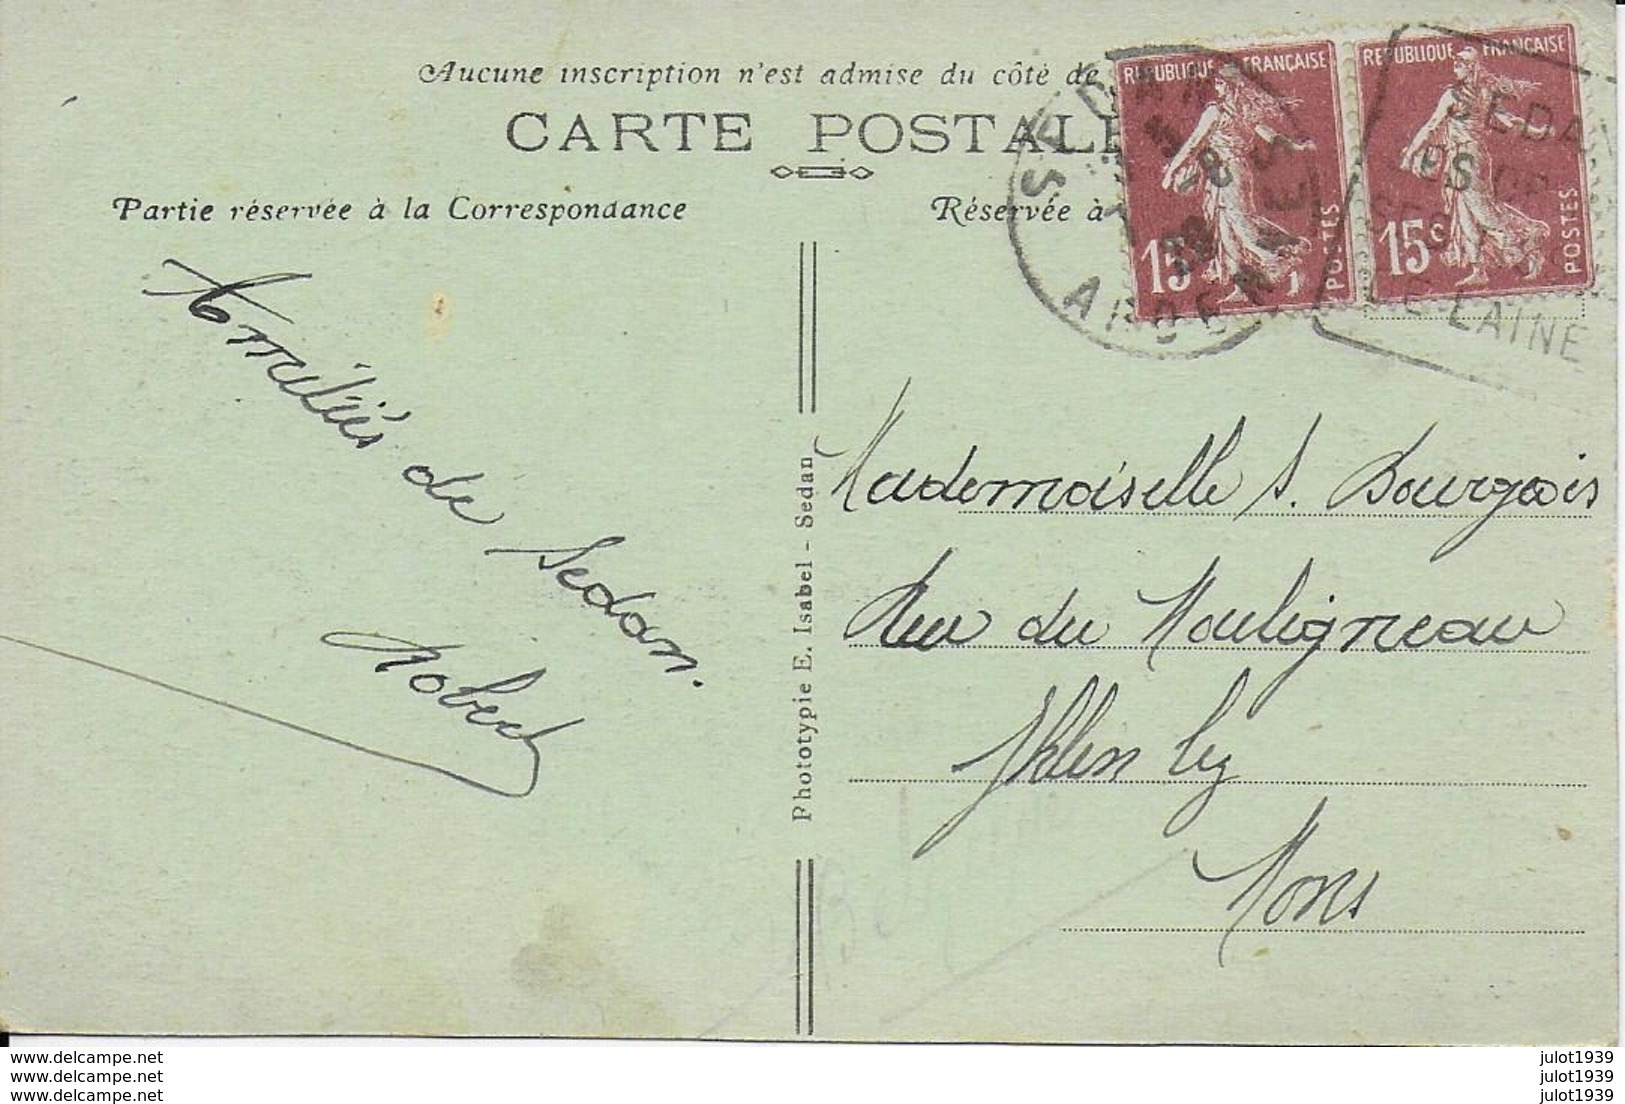 Aucune inscription n'est admise du côté de
CARTE POSTALE
Partie réservée à la Correspondance
Réservée à
REPUBLIQUE FRANÇAISE
15
POSTES
REPUBLIQUE FRANÇAISE
15c
POSTES
SEDAN
ARDENNES
SEDA
LAINE
Amitiés de Sedan.
Robert
Phototypie E. Isabel - Sedan
Mademoiselle S. Bourgeois
Rue du Mouligneau
Mons
www.delcampe.net
www.delcampe.net
www.delcampe.net
julot1939
julot1939
julot1939